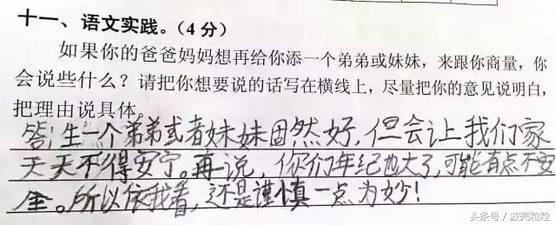 十一、语文实践。(4分)
如果你的爸爸妈妈想再给你添一个弟弟或妹妹,来跟你商量,你
会说些什么?请把你想要说的话写在横线上,尽量把你的意见说明白,
把理由说具体。
答:生一个弟弟或者妹妹固然好,但会让我们家
天天不得安宁。再说,你们年纪也大了,可能有点不安
全。所以依我看,还是谨慎一点为妙!
头条号/波亮粒粒